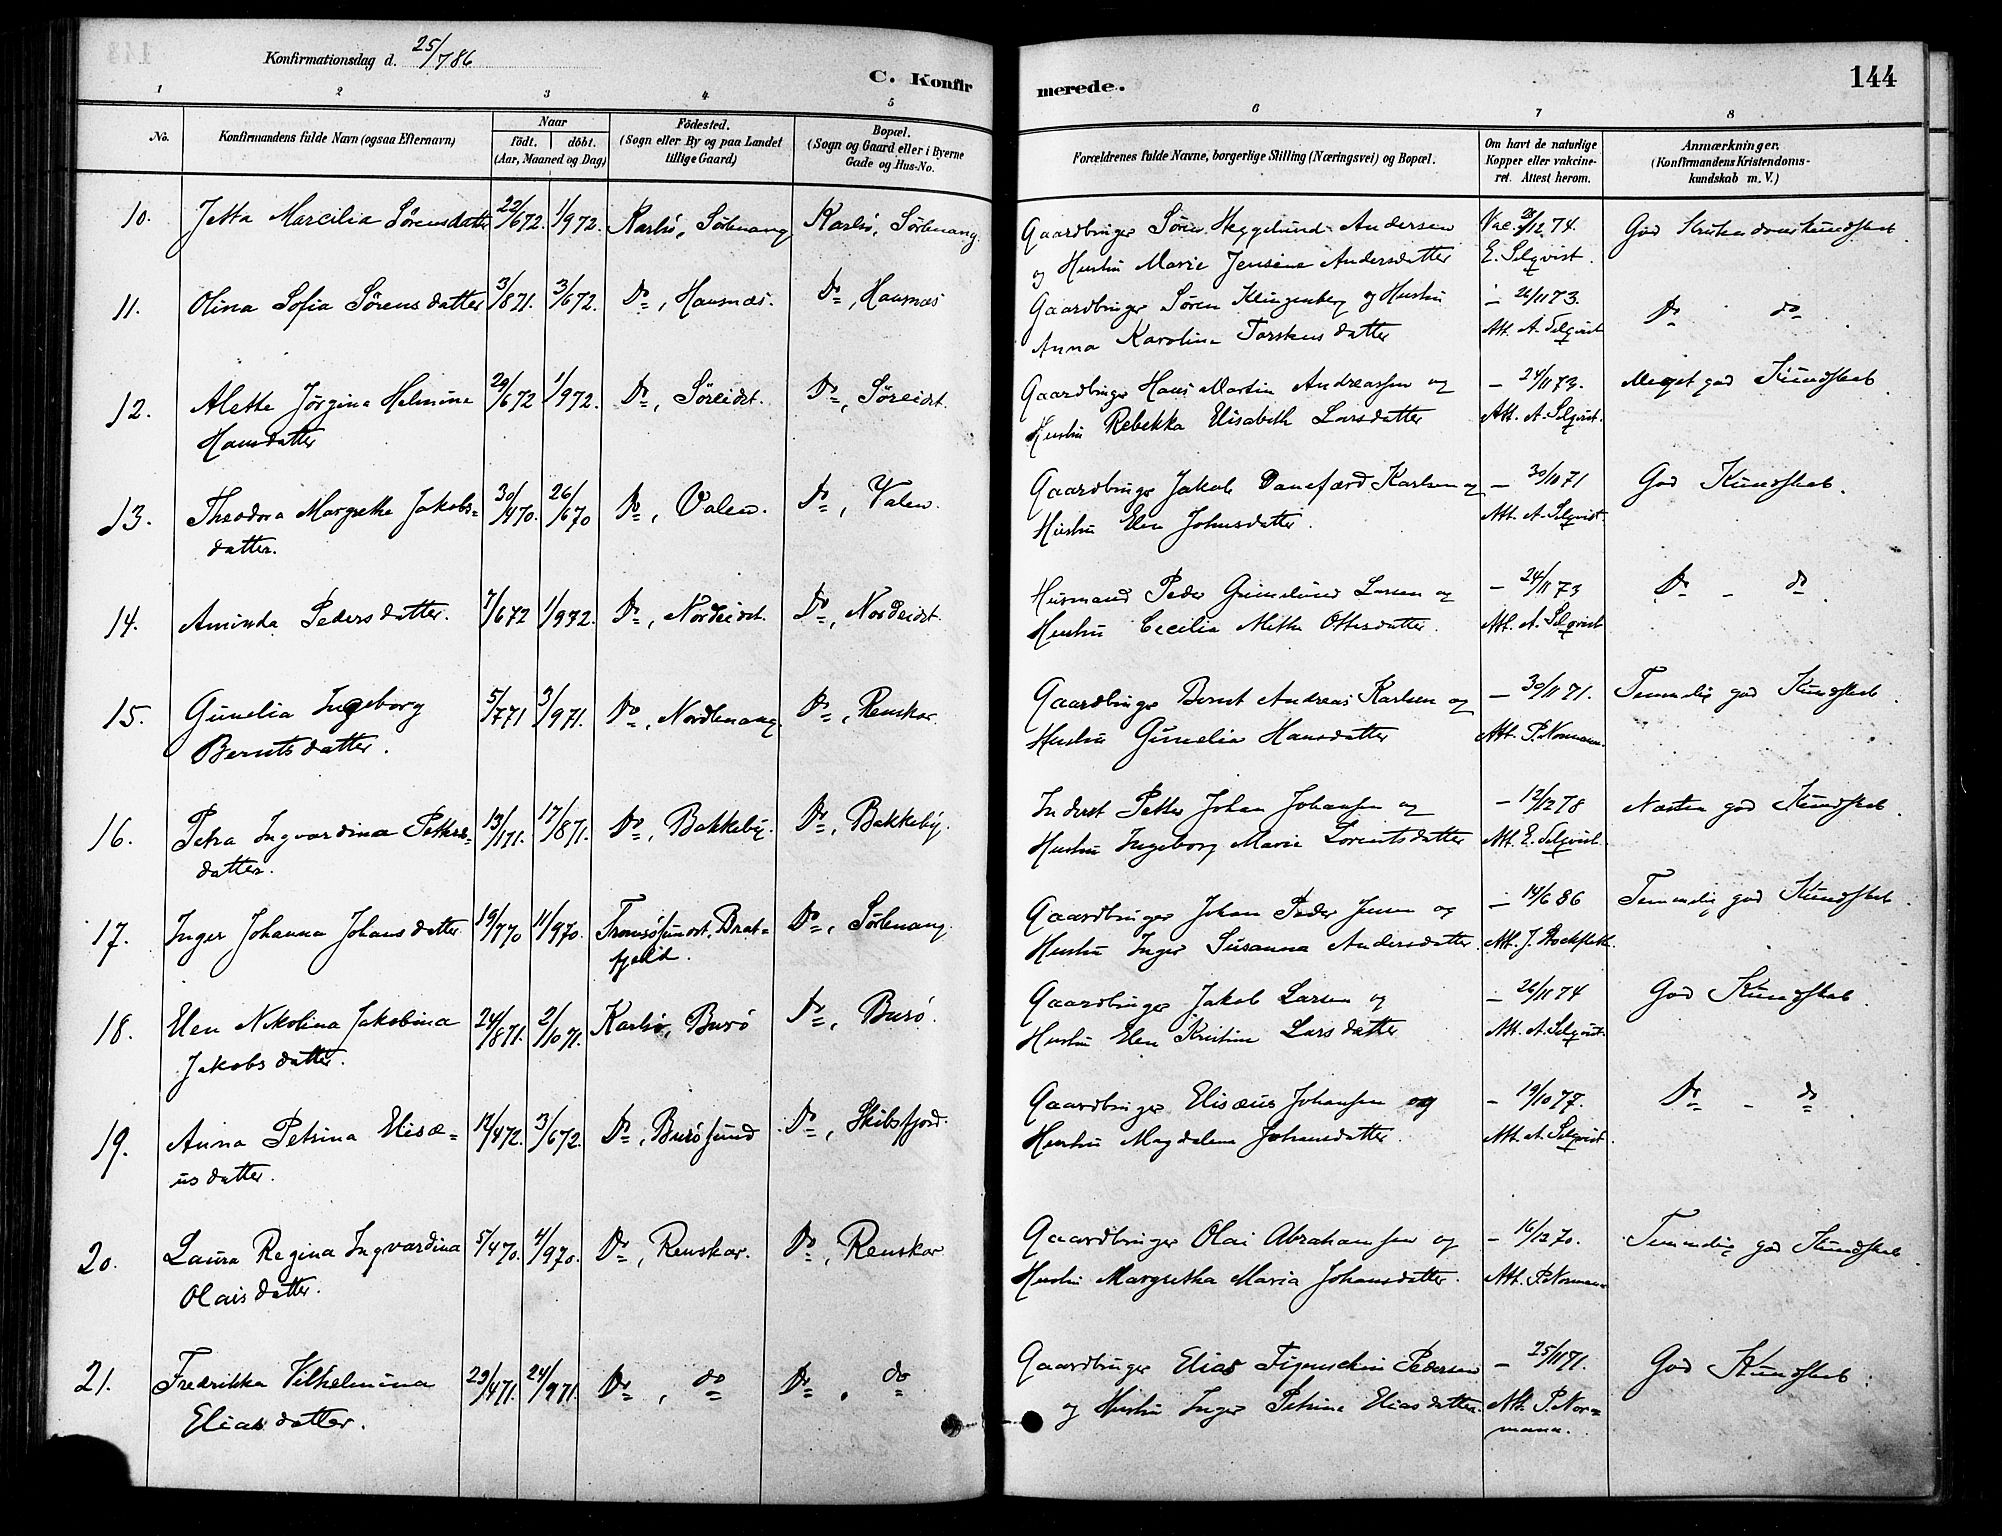 Konfirmationsdag d. 25/7 86
C. Konfirmerede.
144
1 2 3 4 5 6 7 8
No.
Konfirmandens fulde Navn (ogsaa Efternavn)
Naar
födt. döbt.
(Aar, Maaned og Dag)
Födested.
(Sogn eller By og paa Landet
tillige Gaard)
Bopæl.
(Sogn og Gaard eller i Byerne
Gade og Hus-No.
Forældrenes fulde Navne, borgerlige Stilling (Næringsvei) og Bopæl.
Om havt de naturlige
Kopper eller vakcine-
ret. Attest herom.
Anmærkninger.
(Konfirmandens Kristendoms-
kundskab m. V.)
10. Jetta Marcilia Sörensdatter 22/6 72. 1/9 72. Karlsö, Sörlenang Karlsö, Sörlenang. Gaardbruger Sören Heggelund Andersen Vac. 28/12 74. God Kristendomskundskab
og Hustru Marie Jensine Andersdatter E. Selqvist.
11. Olina Sofia Sörensdatter 3/8 71. 3/6 72. Do, Hansnæs. Do, Hansnæs Gaardbruger Sören Klingenberg og Hustru — 26/11 73. Do do
Anna Karolina Torstensdatter Att. A. Selqvist
12. Alette Jörgine Helmine 29/6 72 1/9 72. Do, Söreidet. Do, Söreidet. Gaardbruger Hans Martin Andreassen og — 24/11 73. Meget god Kundskab.
Hansdatter Hustru Rebekka Elisabeth Larsdatter Att. A. Selqvist.
13. Theodora Margrethe Jakobs= 30/4 70. 26/6 70 Do, Valen. Do, Valen. Gaardbruger Jakob Danefærd Karlsen og — 30/11 71 God Kundskab.
datter. Hustru Elen Johnsdatter. Att. A. Selqvist.
14. Aminda Pedersdatter. 7/6 72 1/9 72. Do, Nordeidet. Do, Nordeidet. Husmand Peder Grönlund Larsen og — 24/11 73 Do - do
Hustru Cecilia Mette Ottesdatter. Att. A. Selqvist
15. Gunelia Ingeborg 5/7 71 3/9 71. Do, Nordlenang Do, Renskar. Gaardbruger Bernt Andreas Karlsen og — 30/11 71. Temmelig god Kundskab.
Berntsdatter. Hustru Gunelia Hansdatter Att. P. Normann.
16. Petra Ingvardina Petters= 13/1 71. 17/8 71. Do, Bakkeby. Do, Bakkeby. Inderst Petter Johan Johansen og — 12/12 78 Næsten god Kundskab.
datter. Hustru Ingeborg Marie Lorentsdatter Att. E. Selqvist.
17. Inger Johanna Johansdatter 19/7 70 11/9 70. Tromsösundet, Brat= Do, Sörlenang. Gaardbruger Johan Peder Jensen og — 14/6 86 Temmelig god Kundskab.
fjeld. Hustru Inger Susanna Andersdatter Att. J. Stockfleth.
18. Elen Nikolina Jakobina 24/8 71. 2/10 71. Karlsö, Burö Do, Burö. Gaardbruger Jakob Larsen og — 26/11 74 God Kundskab.
Jakobsdatter. Hustru Elen Kristine Larsdatter Att. A. Selqvist.
19. Anna Petrina Elisæ= 12/4 72. 3/6 72. Do, Burösund Do, Skibsfjord. Gaardbruger Elisæus Johansen og — 19/10 77. Do - do
usdatter. Hustru Magdalena Johansdatter. Att. A. Selqvist.
20. Laura Regina Ingvardina 5/4 70. 4/9 70. Do, Renskar. Do, Renskar Gaardbruger Olai Abrahamsen og — 16/12 70. Temmelig god Kundskab
Olaisdatter. Hustru Margretha Maria Johansdatter. Att. P. Normann
21. Fredrikka Vilhelmina 23/4 71. 24/9 71. Do, do Do, do Gaardbruger Elias Figenschau Pedersen — 25/11 71. God Kundskab.
Eliasdatter. og Hustru Inger Petrine Eliasdatter. Att. P. Nor=
mann.